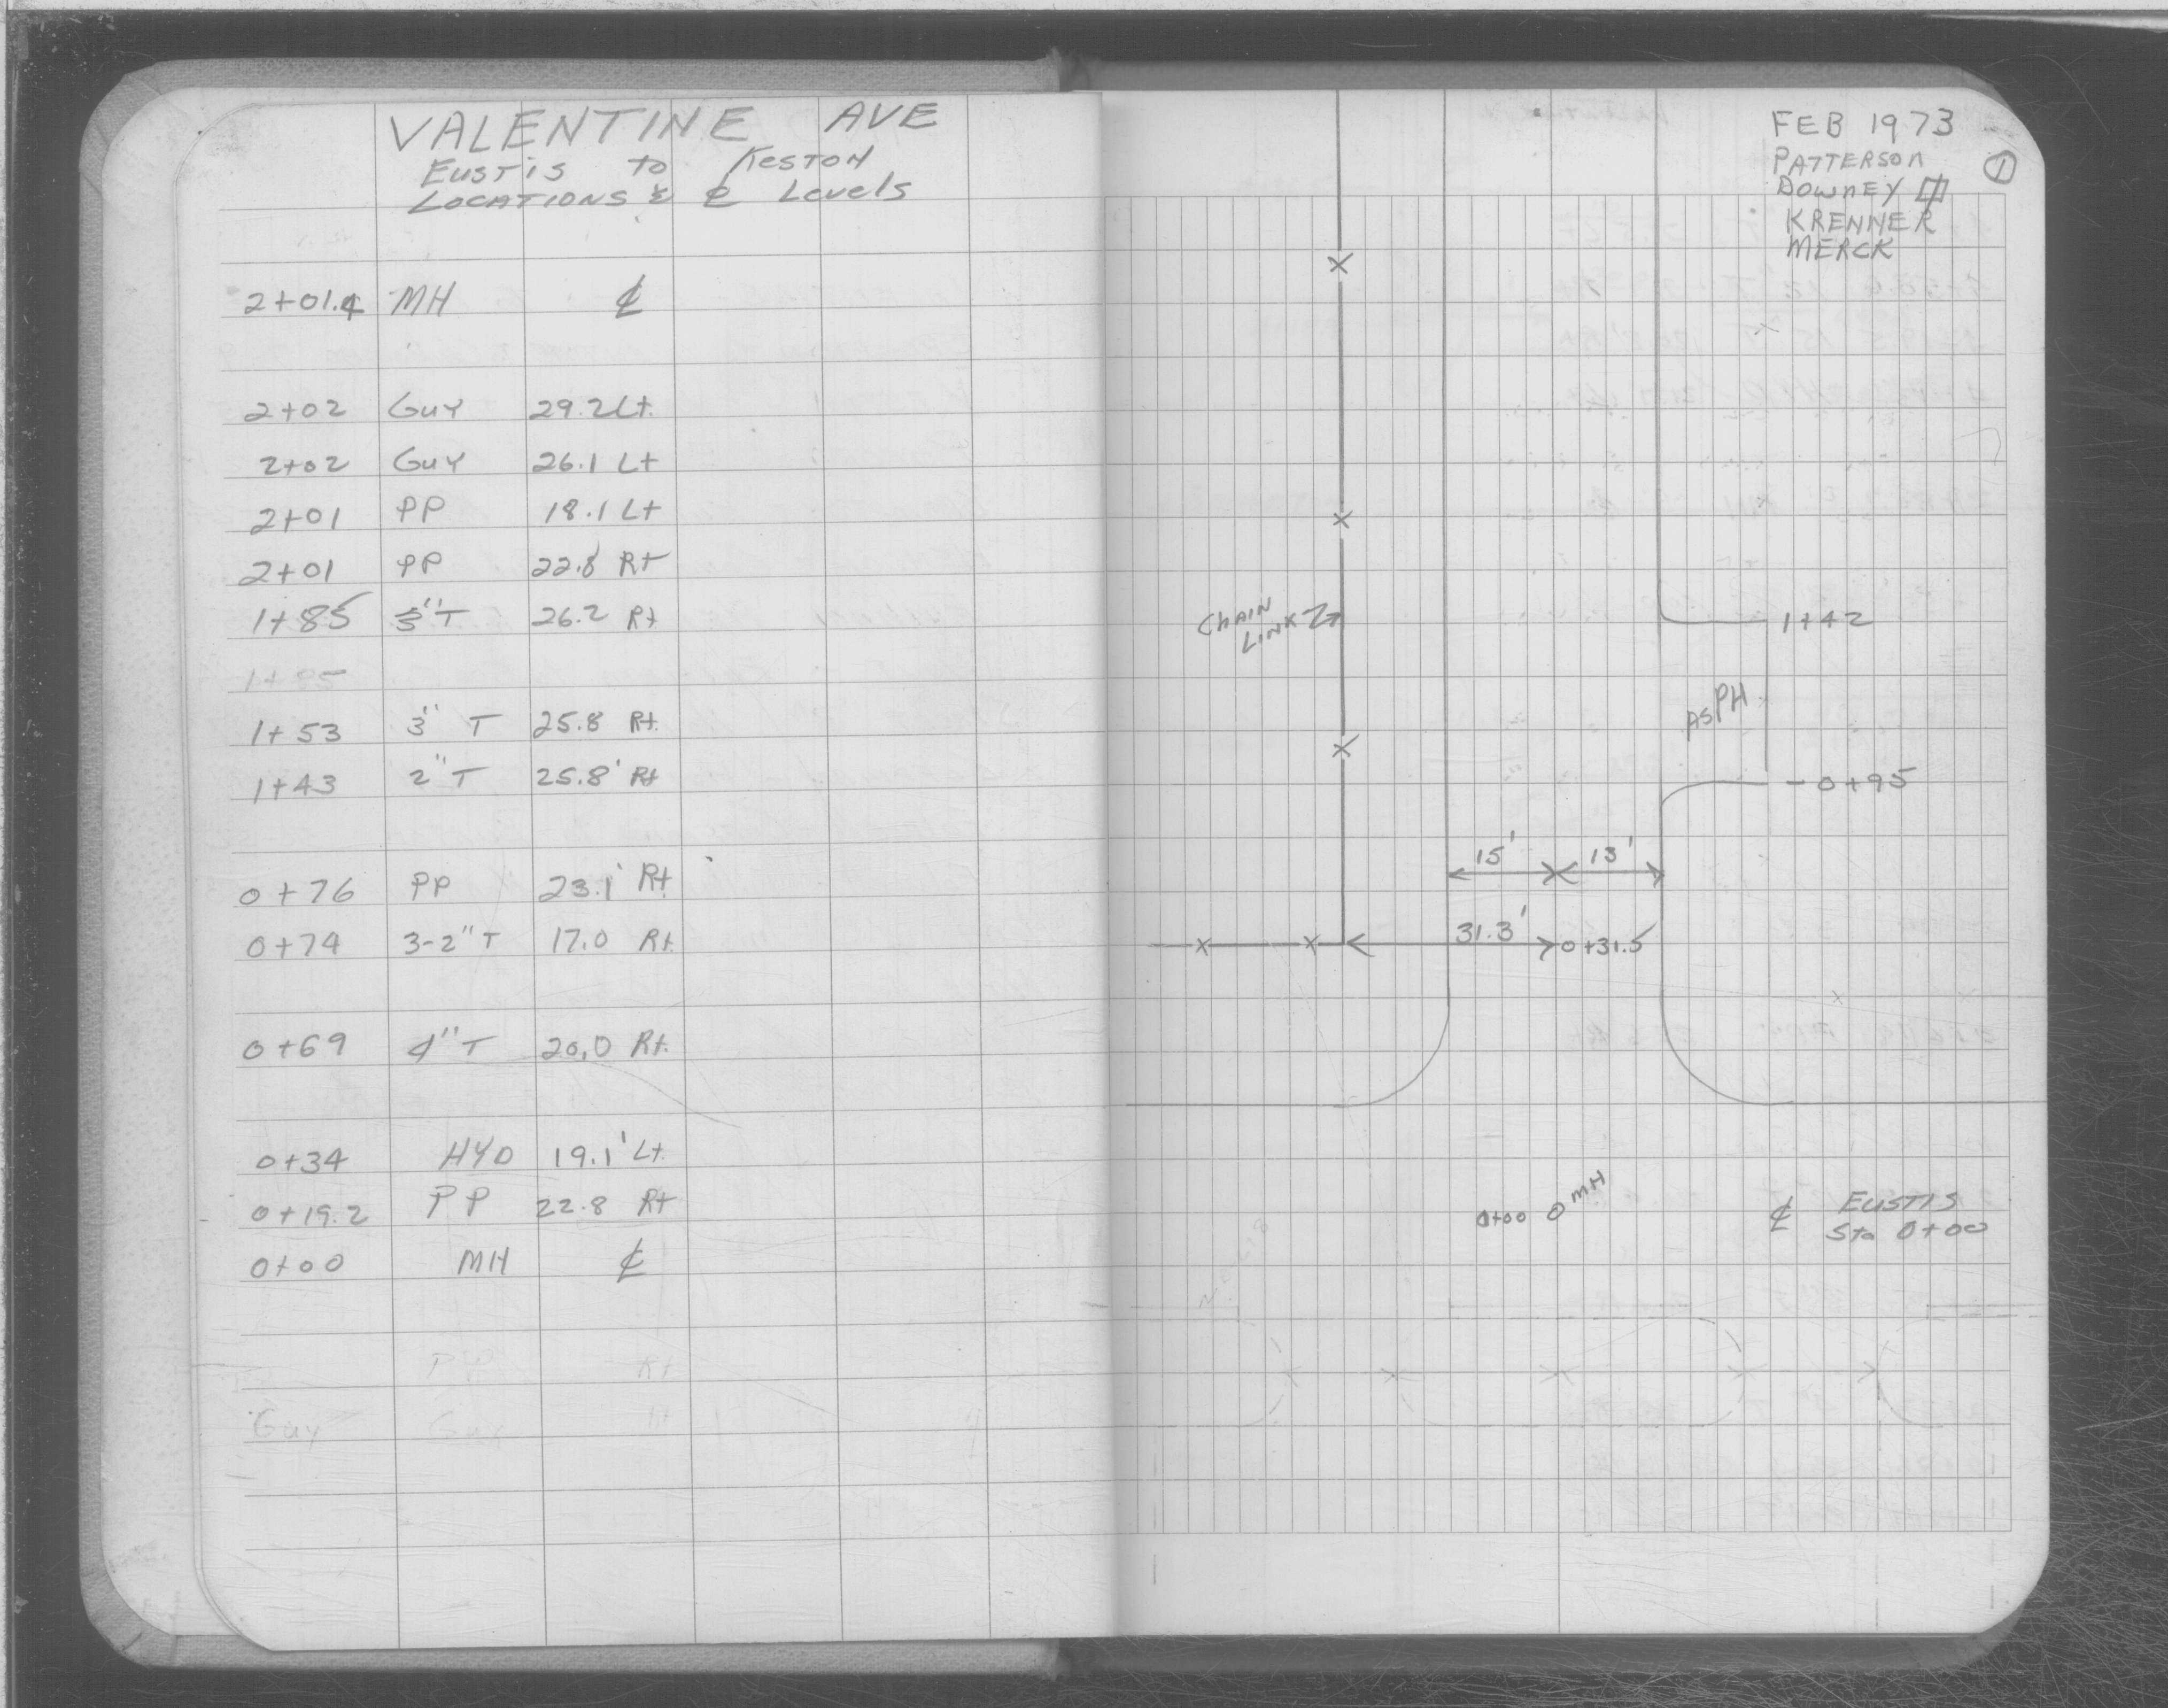 VALENTINE AVE
EUSTIS TO KESTON
LOCATIONS & ℄ Levels
2+01.4 MH ℄
2+02 GUY 29.2 Lt.
2+02 GUY 26.1 Lt
2+01 PP 18.1 Lt
2+01 PP 22.8 Rt
1+85 3"T 26.2 Rt
1+53 3" T 25.8 Rt.
1+43 2" T 25.8' Rt
0+76 PP 23.1' Rt
0+74 3-2" T 17.0 Rt.
0+69 4" T 20.0 Rt.
0+34 HYD 19.1' Lt.
0+19.2 PP 22.8 Rt
0+00 MH ℄
PP Rt
Guy Guy
FEB 1973
PATTERSON
1
DOWNEY
KRENNER
MERCK
CHAIN
LINK
1+42
ASPH
- 0+95
15' 13'
31.3' 0+31.5
0+00 MH
℄ EUSTIS
Sta 0+00